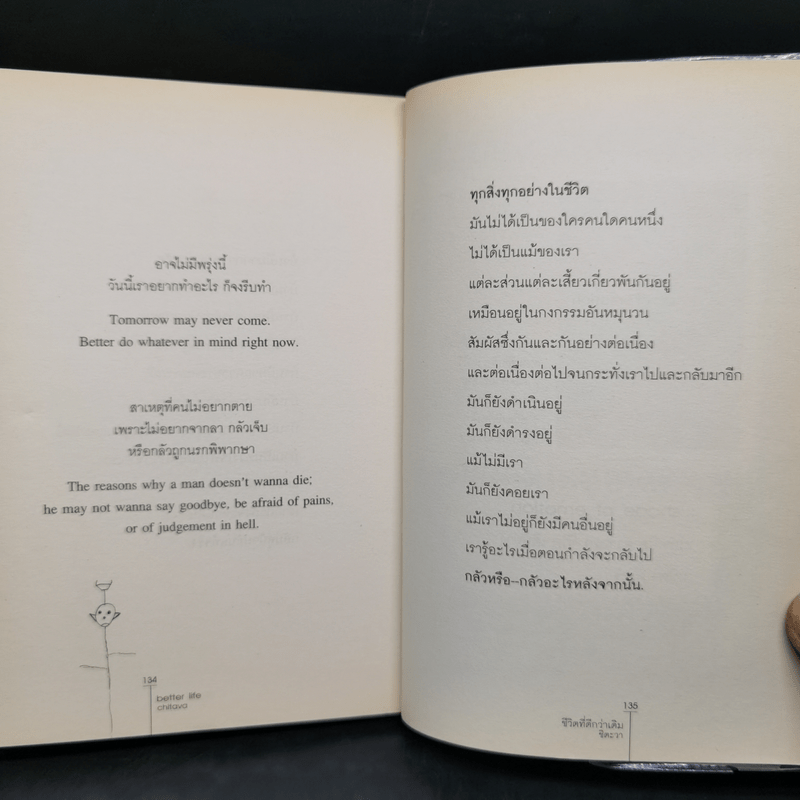 อาจไม่มีพรุ่งนี้
วันนี้เราอยากทำอะไร ก็จงรีบทำ
Tomorrow may never come.
Better do whatever in mind right now.
สาเหตุที่คนไม่อยากตาย
เพราะไม่อยากจากลา กลัวเจ็บ
หรือกลัวถูกนรกพิพากษา
The reasons why a man doesn't wanna die;
he may not wanna say goodbye, be afraid of pains,
or of judgement in hell.
134
better life
chitava
ทุกสิ่งทุกอย่างในชีวิต
มันไม่ได้เป็นของใครคนใดคนหนึ่ง
ไม่ได้เป็นแม้ของเรา
แต่ละส่วนแต่ละเสี้ยวเกี่ยวพันกันอยู่
เหมือนอยู่ในกงกรรมอันหมุนวน
สัมผัสซึ่งกันและกันอย่างต่อเนื่อง
และต่อเนื่องต่อไปจนกระทั่งเราไปและกลับมาอีก
มันก็ยังดำเนินอยู่
มันก็ยังดำรงอยู่
แม้ไม่มีเรา
มันก็ยังคอยเรา
แม้เราไม่อยู่ก็ยังมีคนอื่นอยู่
เรารู้อะไรเมื่อตอนกำลังจะกลับไป
กลัวหรือ–กลัวอะไรหลังจากนั้น.
135
ชีวิตที่ดีกว่าเดิม
ชิตะวา